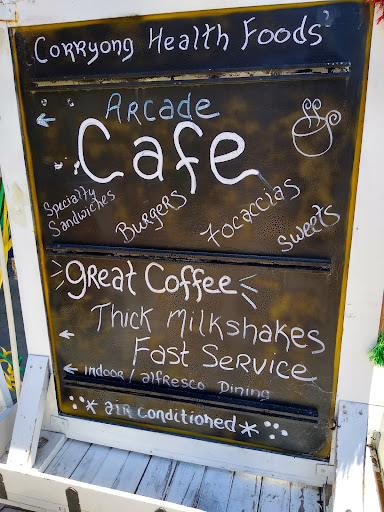 Corryong Health Foods
← Arcade
Cafe
Specialty Sandwiches
Burgers
Focaccias
Sweets
great Coffee
Thick Milkshakes
← Fast Service
← Indoor / alfresco Dining
* air conditioned *